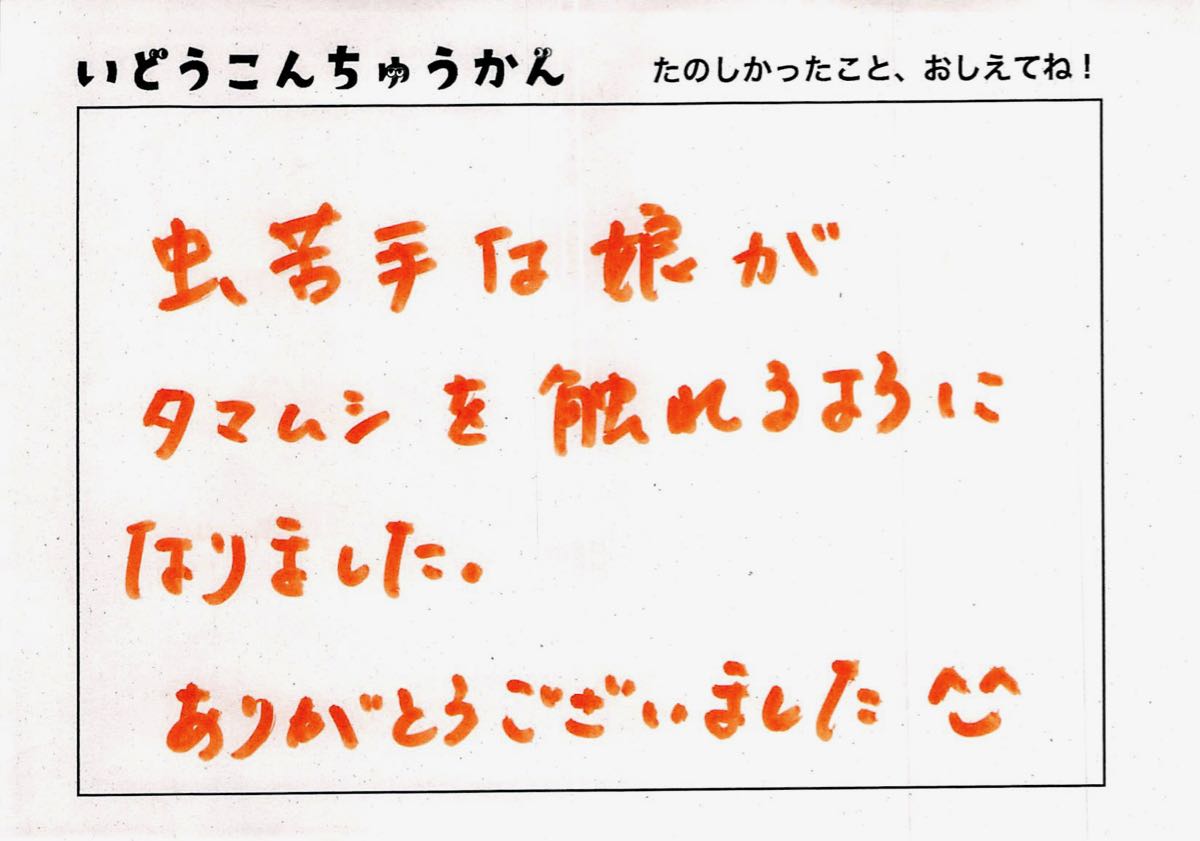 いどうこんちゅうかん
たのしかったこと、おしえてね！
虫、苦手な娘が
タマムシを触れるように
なりました。
ありがとうございました